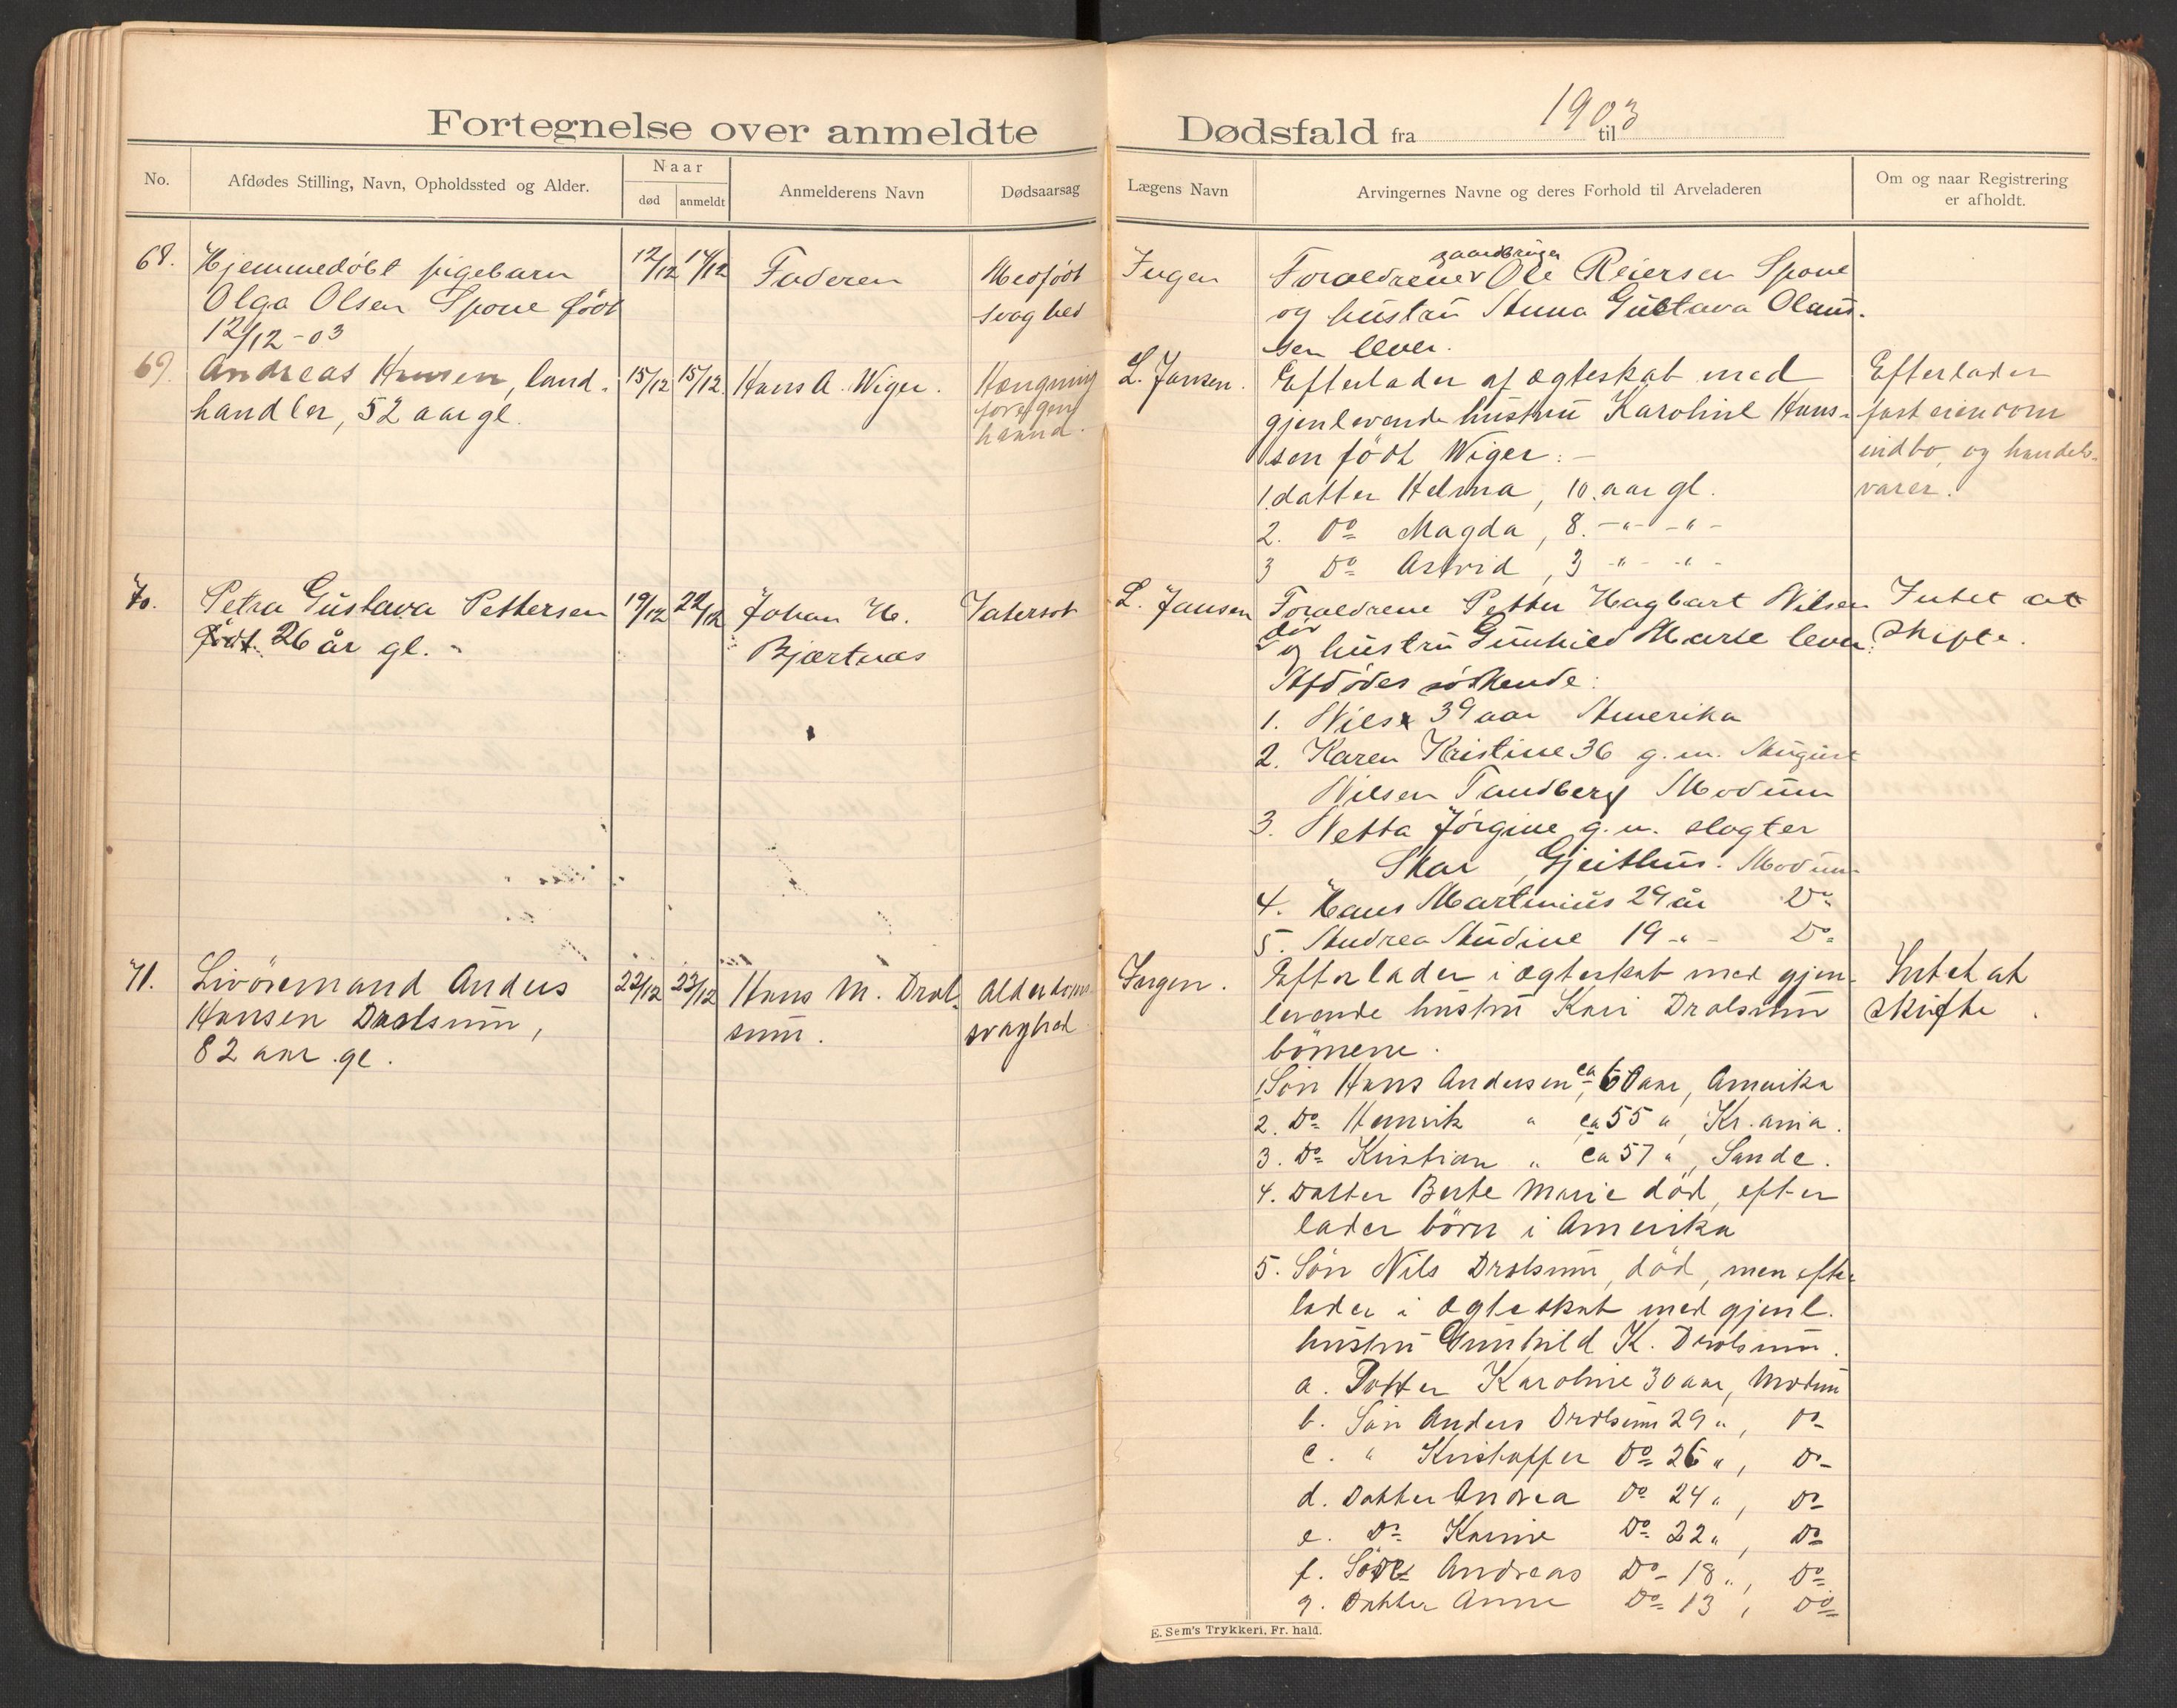 Fortegnelse over anmeldte
No.
Afdødes Stilling, Navn, Opholdssted og Alder.
Naar
død
anmeldt
Anmelderens Navn
Dødsaarsag
68. Hjemmedöbt pigebarn 12/12 14/12 Faderen Medfödt
Olga Olsen Spone födt svaghed
12/12-03
69. Andreas Hansen, land- 15/12 15/12. Hans A. Wiger. Hængning
handler, 52 aar gl.
70. Petra Gustava Pettersen 19/12 22/12 Johan H.
födt 26 år gl. - Bjærtnæs
71. Livöremand Anders 22/12 23/12 Hans M. Drol- Alderdoms
Hansen Drolsum, sum. svaghed
82 aar gl.
Dødsfald fra 1903 til
Lægens Navn
Arvingernes Navne og deres Forhold til Arveladeren
Om og naar Registrering
er afholdt.
gaardbruger
Ingen Forældrene Ole Reiersen Spone
og hustru Anna Gustava Olaus-
sen lever.
L. Jansen. Efterlader af ægteskab med Efterlader
gjenlevende hustru Karoline Hans- fast eiendom
sen födt Wiger: - indbo, og handels-
1. datter Helma, 10. aar gl. varer.
2. Do Magda, 8. -"- -"-
3 Do Astrid, 3 -"- -"-
L. Jansen Forældrene Petter Hagbart Nilsen Intet at
död
og hustru Gunhild Marie lever. skifte.
Afdödes söskende:
1. Nils 39 aar Amerika
2. Karen Kristine 36 g.m. August
Nilsen Tandberg Modum
3. Netta Jörgine g.m. slagter
Skar, Gjeithus. Modum
4. Hans Martinius 29 år Do
5. Andrea Audine 19 -"- Do
Ingen. Efterlader i ægteskab med gjen- Intet at
levende hustru Kari Drolsum skifte.
börnene.
1. Sön Hans Andersen, ca 60 aar, Amerika
2. Do Henrik " ca 55 ", Kr.ania.
3. Do Kristian " ca 57 ", Sande.
4. Datter Berte Marie död, efter
lader börn i Amerika
5. Sön Nils Drolsum, död, men efter
lader i ægteskab med gjenl.
hustru Gunhild K. Drolsum.
a. Datter Karoline 30 aar, Modum
b. Sön Anders Drolsum 29 ", Do
c. " Kristoffer Do 26 ", Do
d. Datter Andrea Do 24 ", Do
e. Do Karine Do 22 ", Do
f. Sön Andreas Do 18 ", Do
g. Datter Anne Do 13, Do
E. Sem's Trykkeri, Fr. hald.